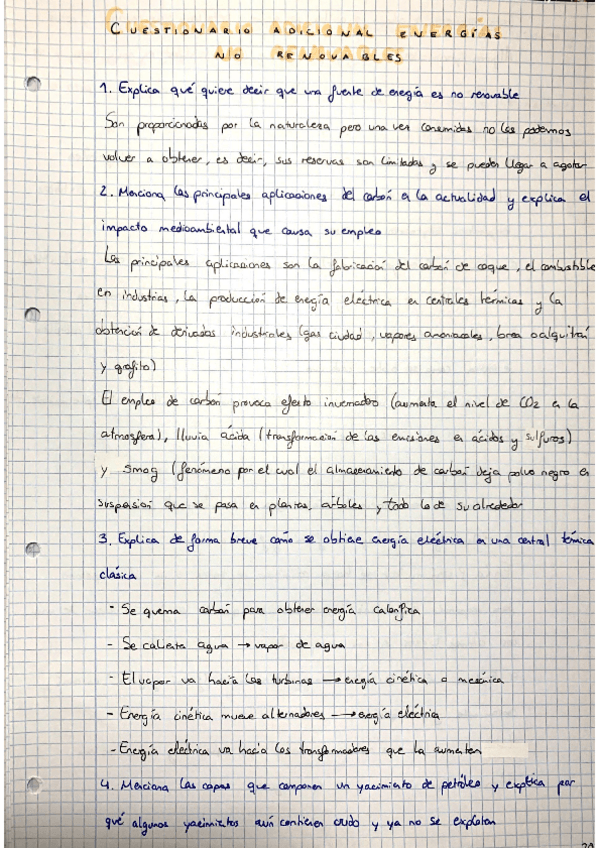 CUESTIONARIO ADICIONAL ENERGÍAS
NO RENOVABLES
1. Explica qué quiere decir que una fuente de energía es no renovable
Son proporcionadas por la naturaleza pero una vez consumidas no las podemos
volver a obtener, es decir, sus reservas son limitadas y se pueden llegar a agotar
2. Menciona las principales aplicaciones del carbón en la actualidad y explica el
impacto medioambiental que causa su empleo
Las principales aplicaciones son la fabricación del carbón de coque, el combustible
en industrias, la producción de energía eléctrica en centrales térmicas y la
obtención de derivados industriales (gas ciudad, vapores amoniacales, brea o alquitrán
y grafito)
El empleo de carbón provoca efecto invernadero (aumenta el nivel de CO2 en la
atmosfera), lluvia ácida (transformación de las emisiones en ácidos y sulfuros)
y smog (fenómeno por el cual el almacenamiento de carbón deja polvo negro en
suspensión que se posa en plantas, árboles y todo lo de su alrededor
3. Explica de forma breve cómo se obtiene energía eléctrica en una central térmica
clásica
- Se quema carbón para obtener energía calorífica
- Se calienta agua → vapor de agua
- El vapor va hacia las turbinas → energía cinética o mecánica
- Energía cinética mueve alternadores → energía eléctrica
- Energía eléctrica va hacia los transformadores que la aumentan
4. Menciona las capas que componen un yacimiento de petróleo y explica por
qué algunos yacimientos aún contienen crudo y ya no se explotan